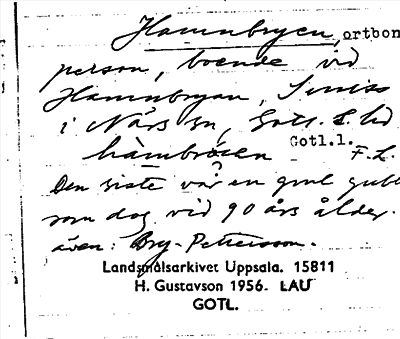 Hamnbryen, ortbon
person, boende vid
Hamnbryan, Smiss
i Närs sn, Gotl. L. lid
Gotl.l.
hàmbrö̀en F.L.
?
Den siste var en gml gubbe
som dog vid 90 års ålder.
även: Bry-Pettersson.
Landsmålsarkivet Uppsala. 15811
H. Gustavson 1956. LAU
GOTL.